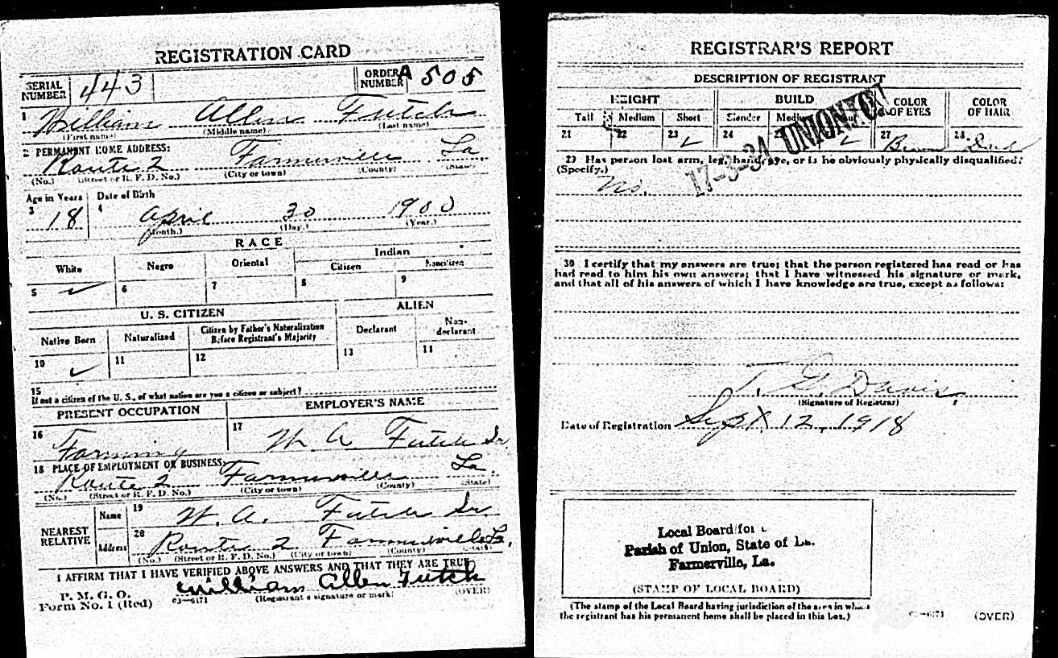 REGISTRATION CARD
SERIAL NUMBER 443 ORDER NUMBER A 505
1 William Allen Futch
(First name) (Middle name) (Last name)
2 PERMANENT HOME ADDRESS:
Route 2 Farmerville La
(No.) (Street or R. F. D. No.) (City or town) (County) (State)
Age in Years Date of Birth
3 18 4 April 30 1900
(Month.) (Day.) (Year.)
RACE
White Negro Oriental Indian
Citizen Noncitizen
5 ✓ 6 7 8 9
U. S. CITIZEN ALIEN
Native Born Naturalized Citizen by Father's Naturalization Before Registrant's Majority Declarant Non-declarant
10 ✓ 11 12 13 14
15 If not a citizen of the U. S., of what nation are you a citizen or subject?
PRESENT OCCUPATION EMPLOYER'S NAME
16 Farming 17 W A Futch Sr
18 PLACE OF EMPLOYMENT OR BUSINESS:
Route 2 Farmerville La.
(No.) (Street or R. F. D. No.) (City or town) (County) (State)
NEAREST RELATIVE
Name 19 W. A. Futch Sr
Address 20 Route 2 Farmerville La.
(No.) (Street or R. F. D. No.) (City or town) (County) (State)
I AFFIRM THAT I HAVE VERIFIED ABOVE ANSWERS AND THAT THEY ARE TRUE
P. M. G. O.
Form No. 1 (Red) 03-6171 William Allen Futch
(Registrant's signature or mark) (OVER)
REGISTRAR'S REPORT
DESCRIPTION OF REGISTRANT
HEIGHT BUILD COLOR OF EYES COLOR OF HAIR
Tall Medium Short Slender Medium
21 22 23 ✓ 24 27 Brown 28
17-3-34 UNION
29 Has person lost arm, leg, hand, eye, or is he obviously physically disqualified?
(Specify.) No.
30 I certify that my answers are true; that the person registered has read or has
had read to him his own answers; that I have witnessed his signature or mark,
and that all of his answers of which I have knowledge are true, except as follows:
T. G. Davis,
(Signature of Registrar)
Date of Registration Sept 12, 1918
Local Board for
Parish of Union, State of La.
Farmerville, La.
(STAMP OF LOCAL BOARD)
(The stamp of the Local Board having jurisdiction of the area in which
the registrant has his permanent home shall be placed in this box.)
03-6171 (OVER)